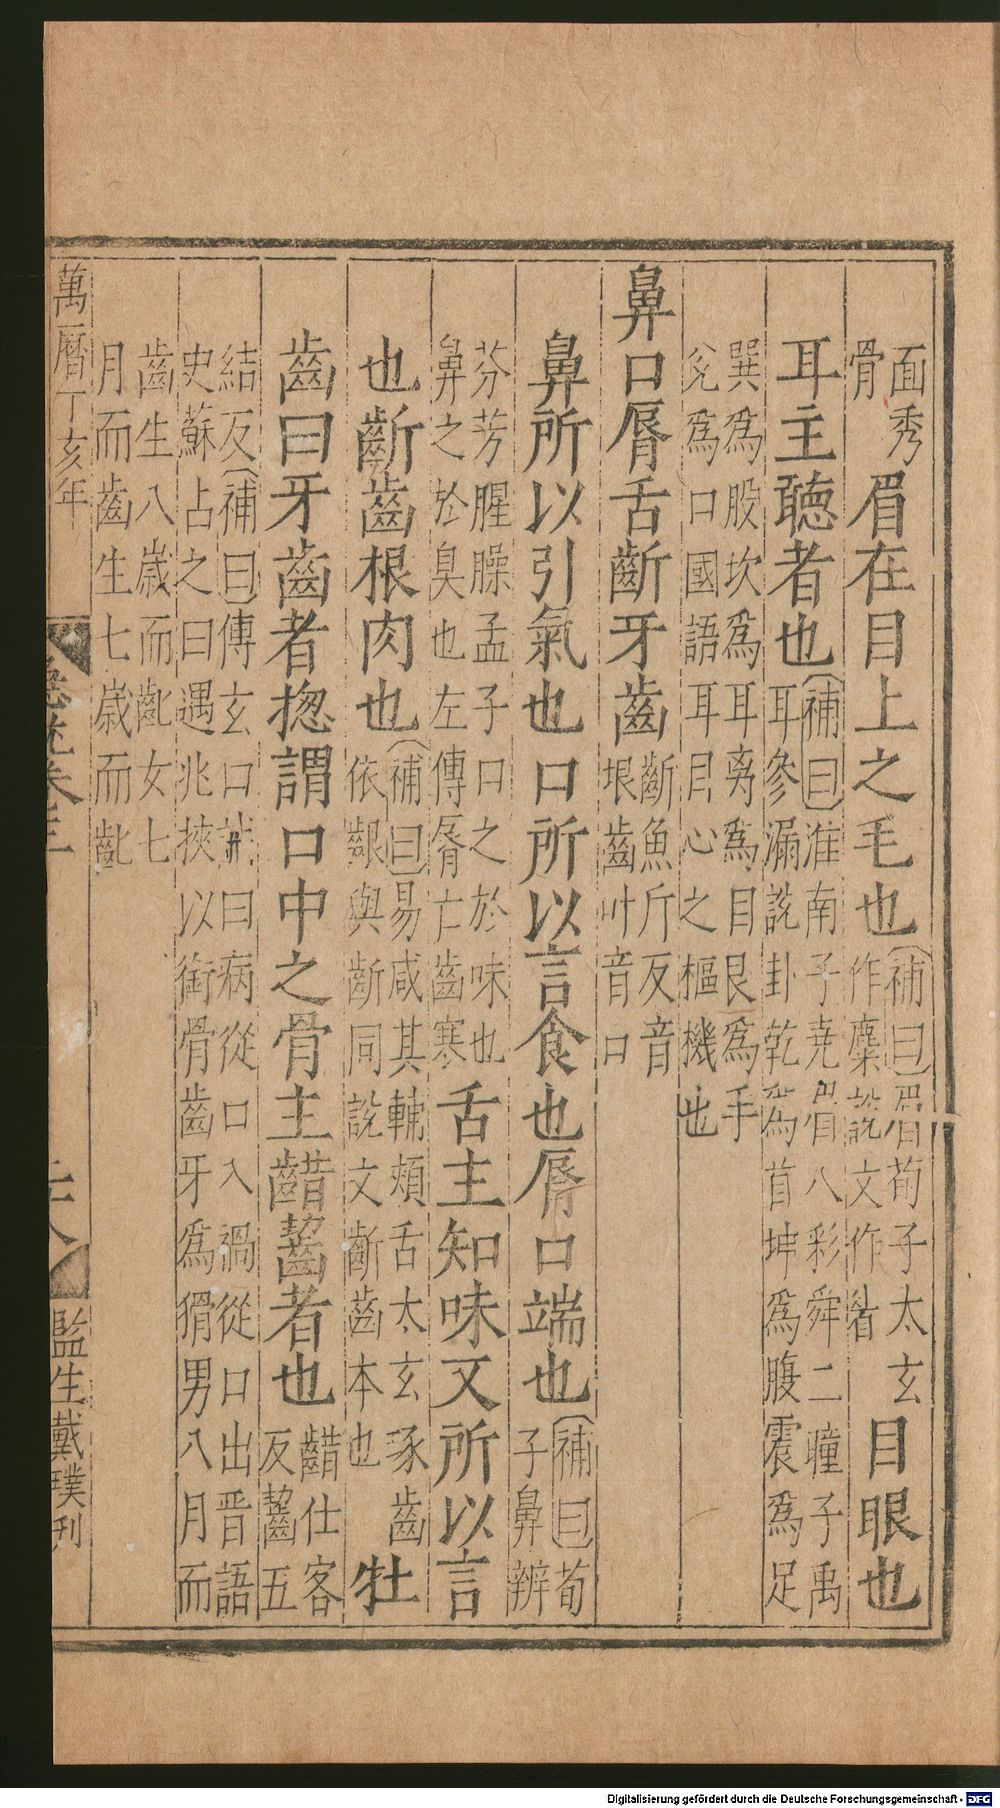 面秀骨眉在目上之毛也補曰眉荀子太玄作麋說文作𥄎目眼也
耳主聽者也補曰淮南子堯眉八彩舜二瞳子禹耳參漏說卦乾爲首坤爲腹震爲足
巽爲股坎爲耳离爲目艮爲手兌爲口國語耳目心之樞機也
鼻口脣舌齗牙齒齗魚斤反音垠齒卝音口
鼻所以引氣也口所以言食也脣口端也補曰荀子鼻辨
芬芳腥臊孟子口之於味也鼻之於臭也左傳脣亡齒寒舌主知味又所以言
也齗齒根肉也補曰易咸其輔頰舌太玄琢齒依齦與齗同說文齗齒本也牡
齒曰牙齒者揔謂口中之骨主齰齧者也齰仕客反齧五
結反補曰傳玄口銘曰病從口入禍從口出晉語史蘇占之曰遇兆挾以銜骨齒牙爲猾男八月而
齒生八歳而齔女七月而齒生七歳而齔
萬曆丁亥年
急就卷三
二十八
監生戴璞刋
Digitalisierung gefördert durch die Deutsche Forschungsgemeinschaft - DFG